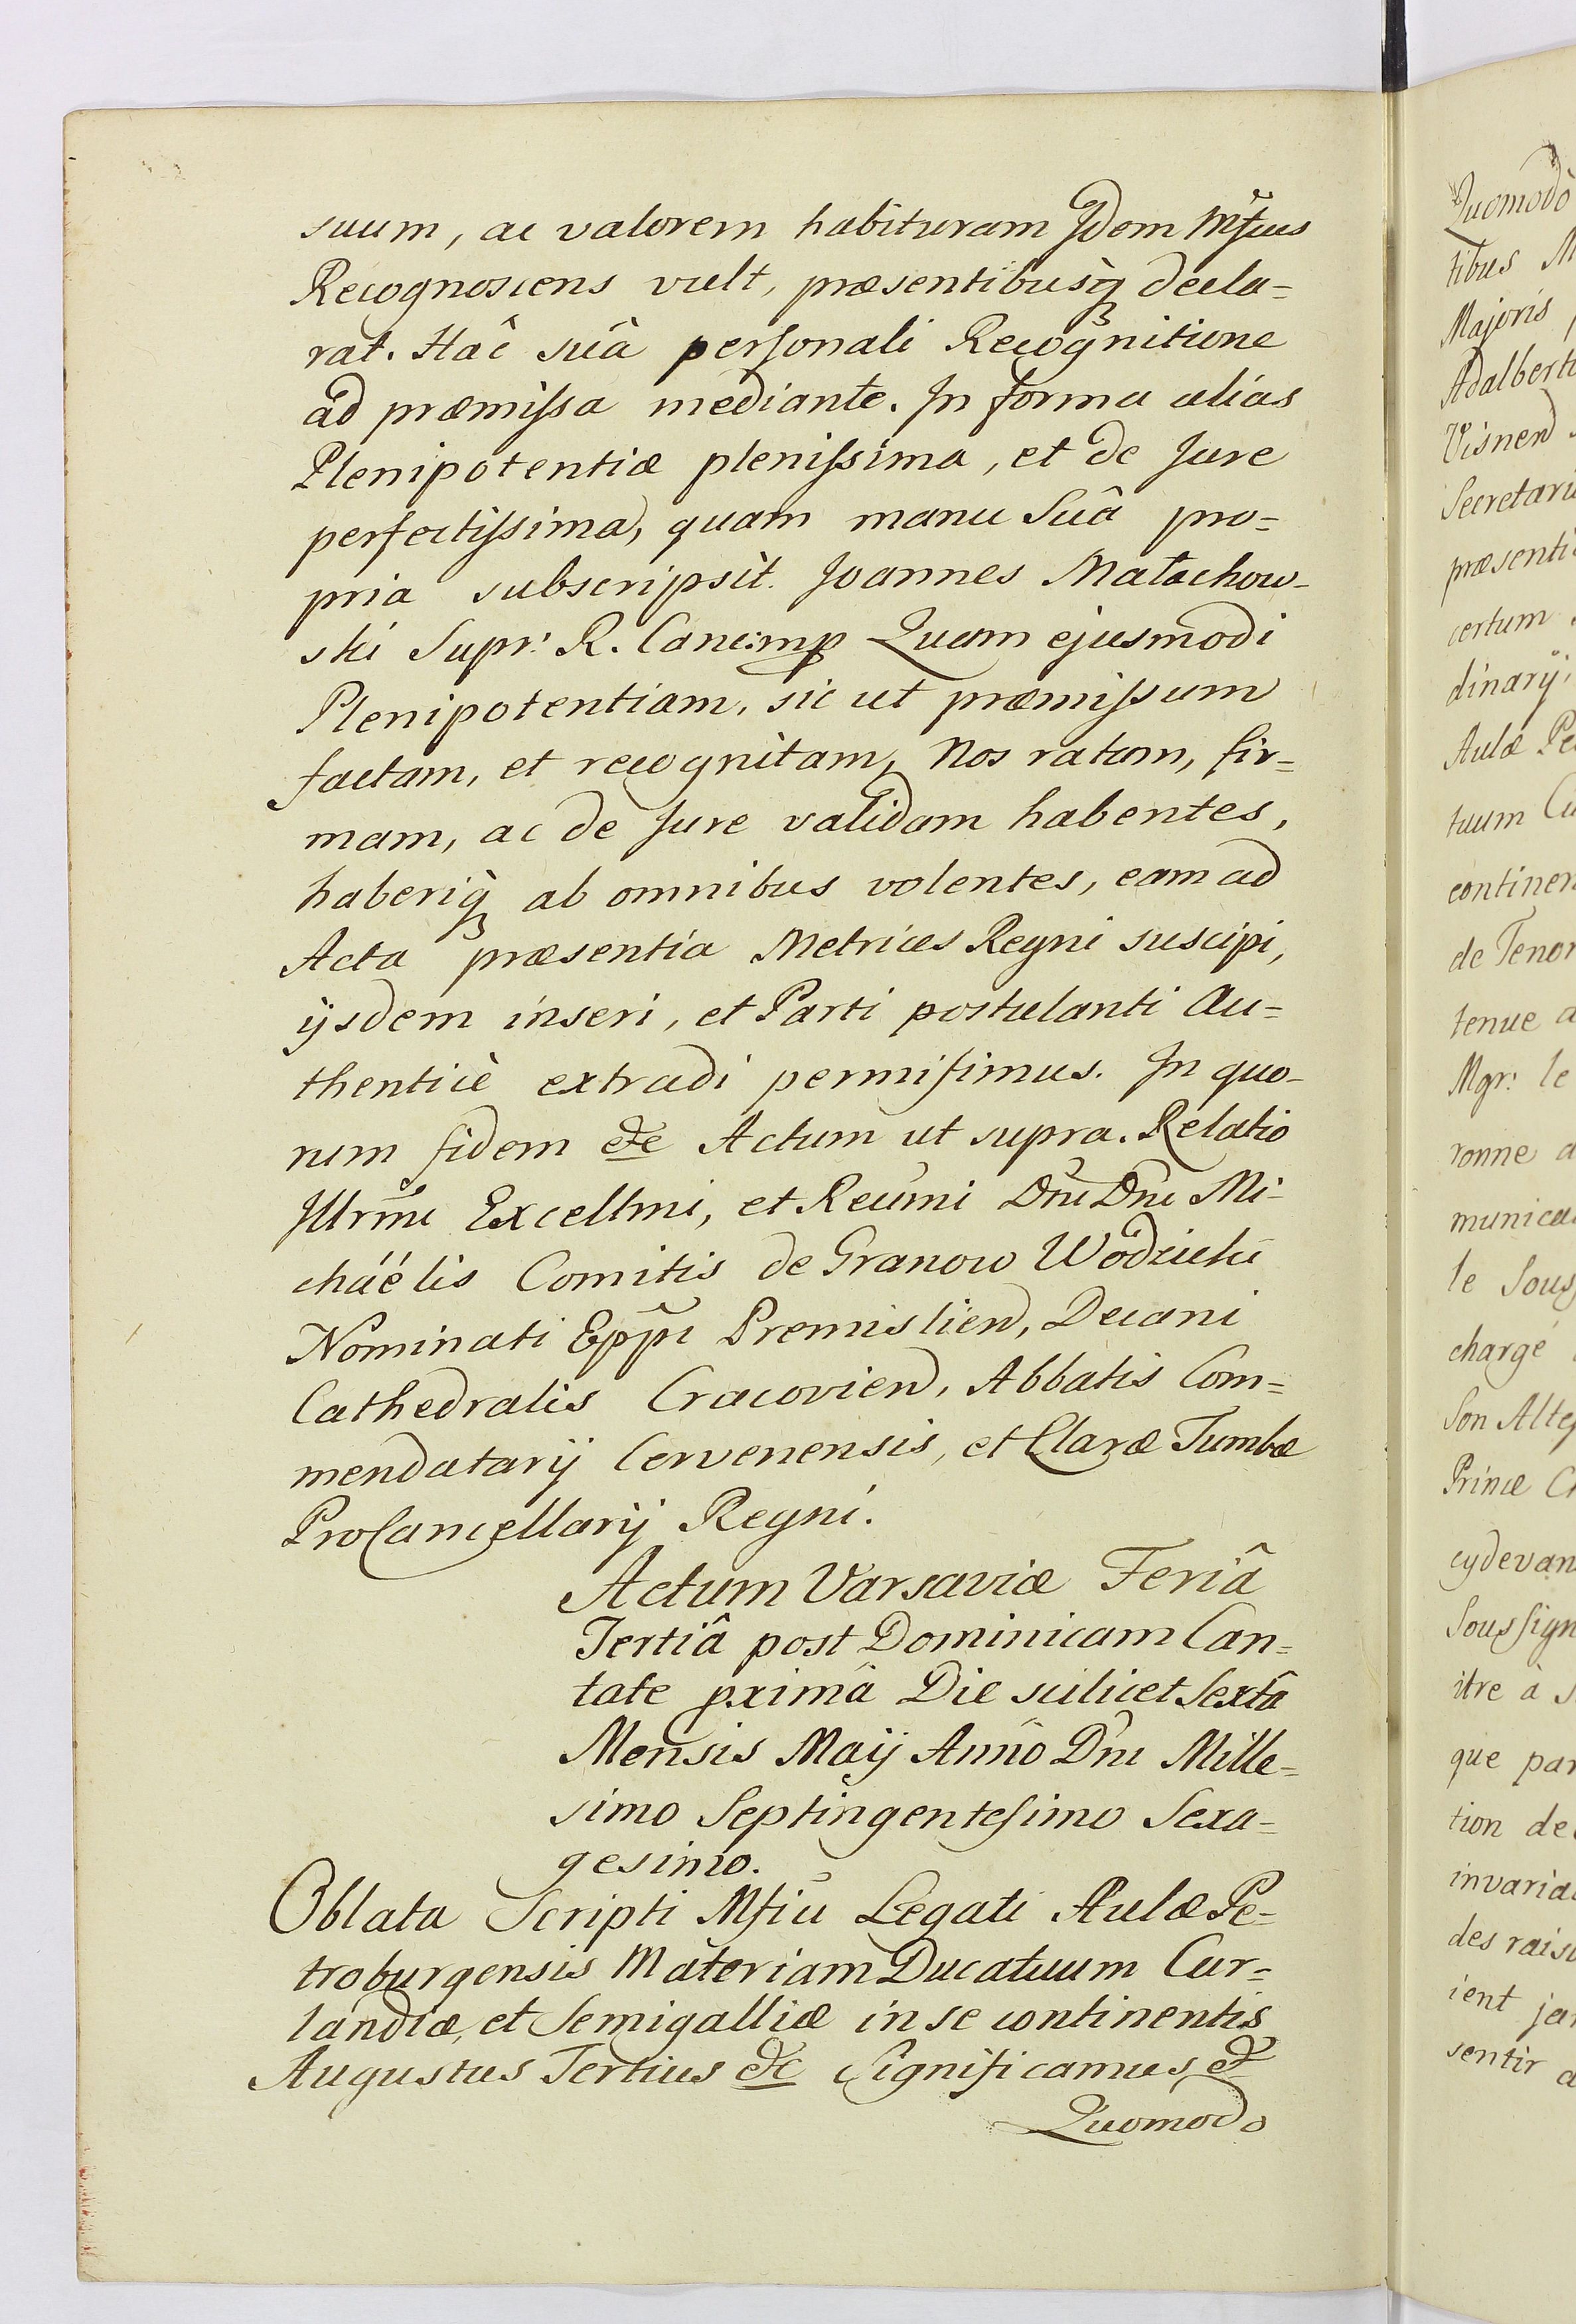 suum, ac valorem habituram Jdem Mf̃cus
Recognoscens vult, præsentibusq̃ decla=
rat. Hâc suâ personali Recognitione
ad præmissa mediante. In forma alias
Plenipotentiæ plenissima, et de Jure
perfectissima, quam manu Suâ pro=
pria subscripsit. Joannes Małachow-
ski Supr: R. Canc:mp Quam ejusmodi
Plenipotentiam, sic ut præmissum
factam, et recognitam, Nos ratam, fir=
mam, ac de Jure validam habentes,
haberiq̃ ab omnibus volentes, eam ad
Acta præsentia Metrices Regni suscipi,
ijsdem inseri, et Parti postulanti Au=
thenticè extradi permisimus. In quo-
rum fidem etc Actum ut supra. Relatio
Illrm̃i Excellmi, et Reum̃i Dñi Dñi Mi-
chaélis Comitis de Granow Wodzicki
Nominati Epp̃i Premislien, Decani
Cathedralis Cracovien, Abbatis Com=
mendatarij Cervenensis, et Claræ Tumbæ
ProCancellarij Regni.
Actum Varsaviæ Feriâ
Tertiâ post Dominicam Can=
tate pximâ Die scilicet Sextâ
Mensis Maij Anno Dñi Mille=
simo Septingentesimo Sexa=
gesimo.
Oblata Scripti Mf̃ci Legati Aulæ Pe=
troburgensis Materiam Ducatuum Cur=
landiæ, et Semigalliæ in se continentis
Augustus Tertius etc Significamus et
Quomodo
Quomodò
tibus M
Majoris
Adalberti
Visnen
Secretari
præsenti
certum
dinarij
Aulæ Pe
tuum Cu
continen
de Tenor
tenue a
Mgr: le
ronne a
munica
le Sous
chargé
Son Altes
Prince C
cydevan
Soussign
itre à s
que par
tion de
invaria
des rais
ient ja
sentir a